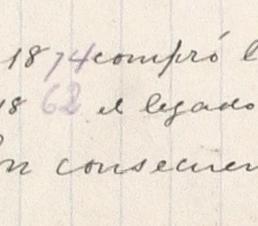 1874 compró l
1862 el legado
on consecuen